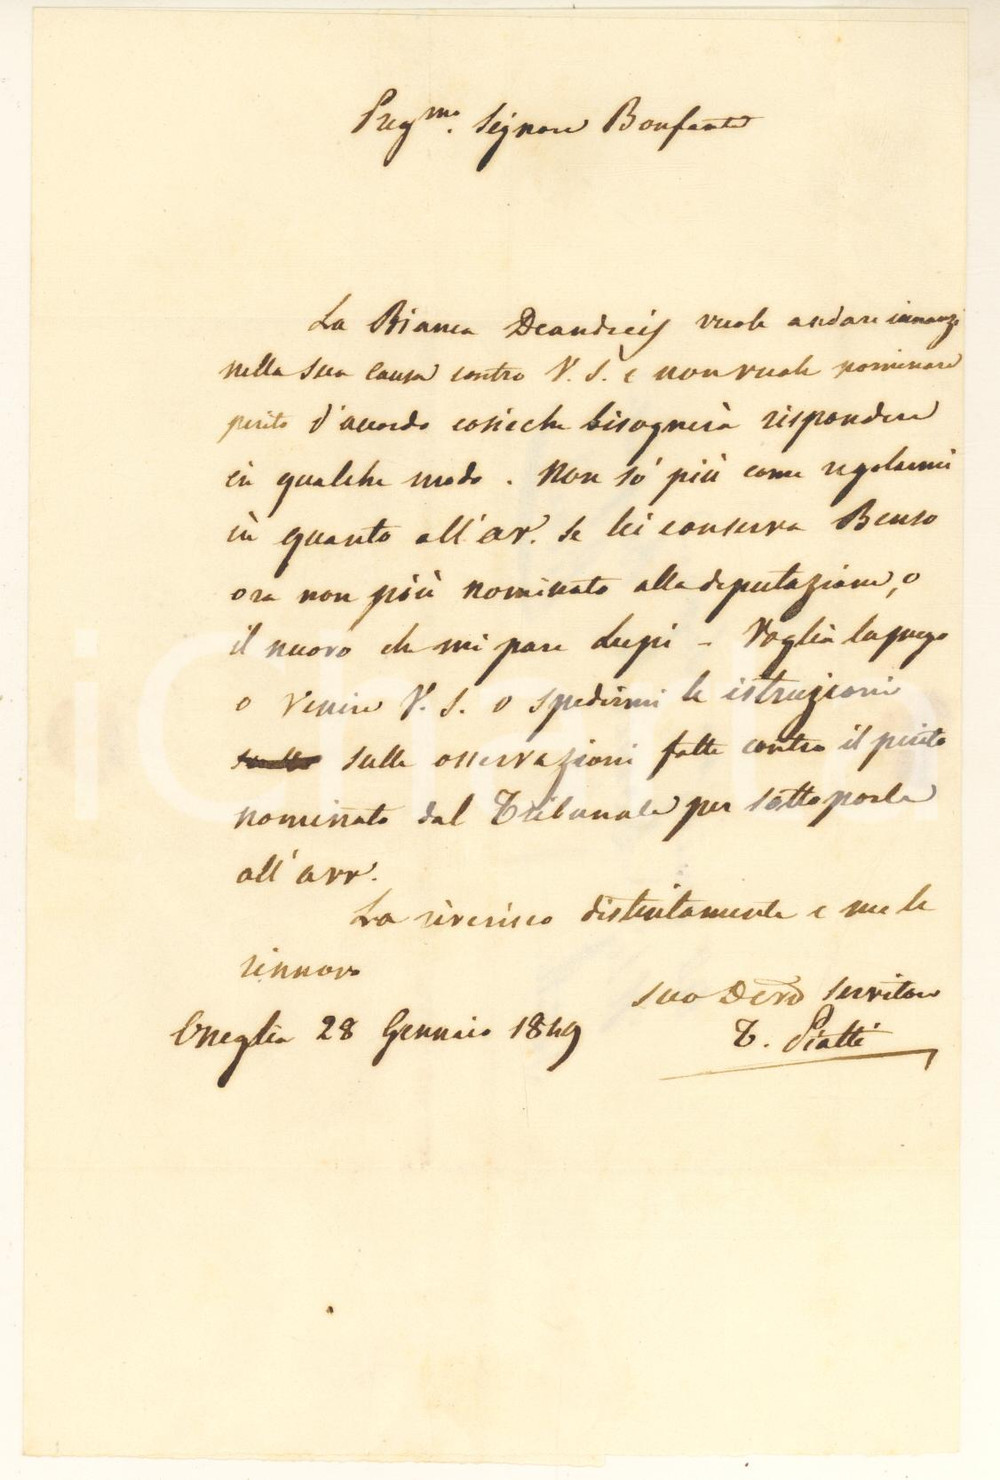 Preg.mo Signore Bonfante
La Bianca Deandreis vuole andare innanzi
nella sua causa contro V. S. e non vuole nominare
perito d'accordo cosicche bisognerà rispondere
in qualche modo. Non sò più come regolarmi
in quanto all'av. se lei conserva Benso
ora non più nominato alla deputazione, o
il nuovo che mi pare Lupi - Voglia la prego
o venire V. S. o spedirmi le istruzioni
sulle osservazioni fatte contro il perito
nominato dal Tribunale per sottoporle
all'avv.
La riverisco distintamente e me le
rinnovo
suo Dev.o servitore
Oneglia 28 Gennaio 1849
T. Piatti